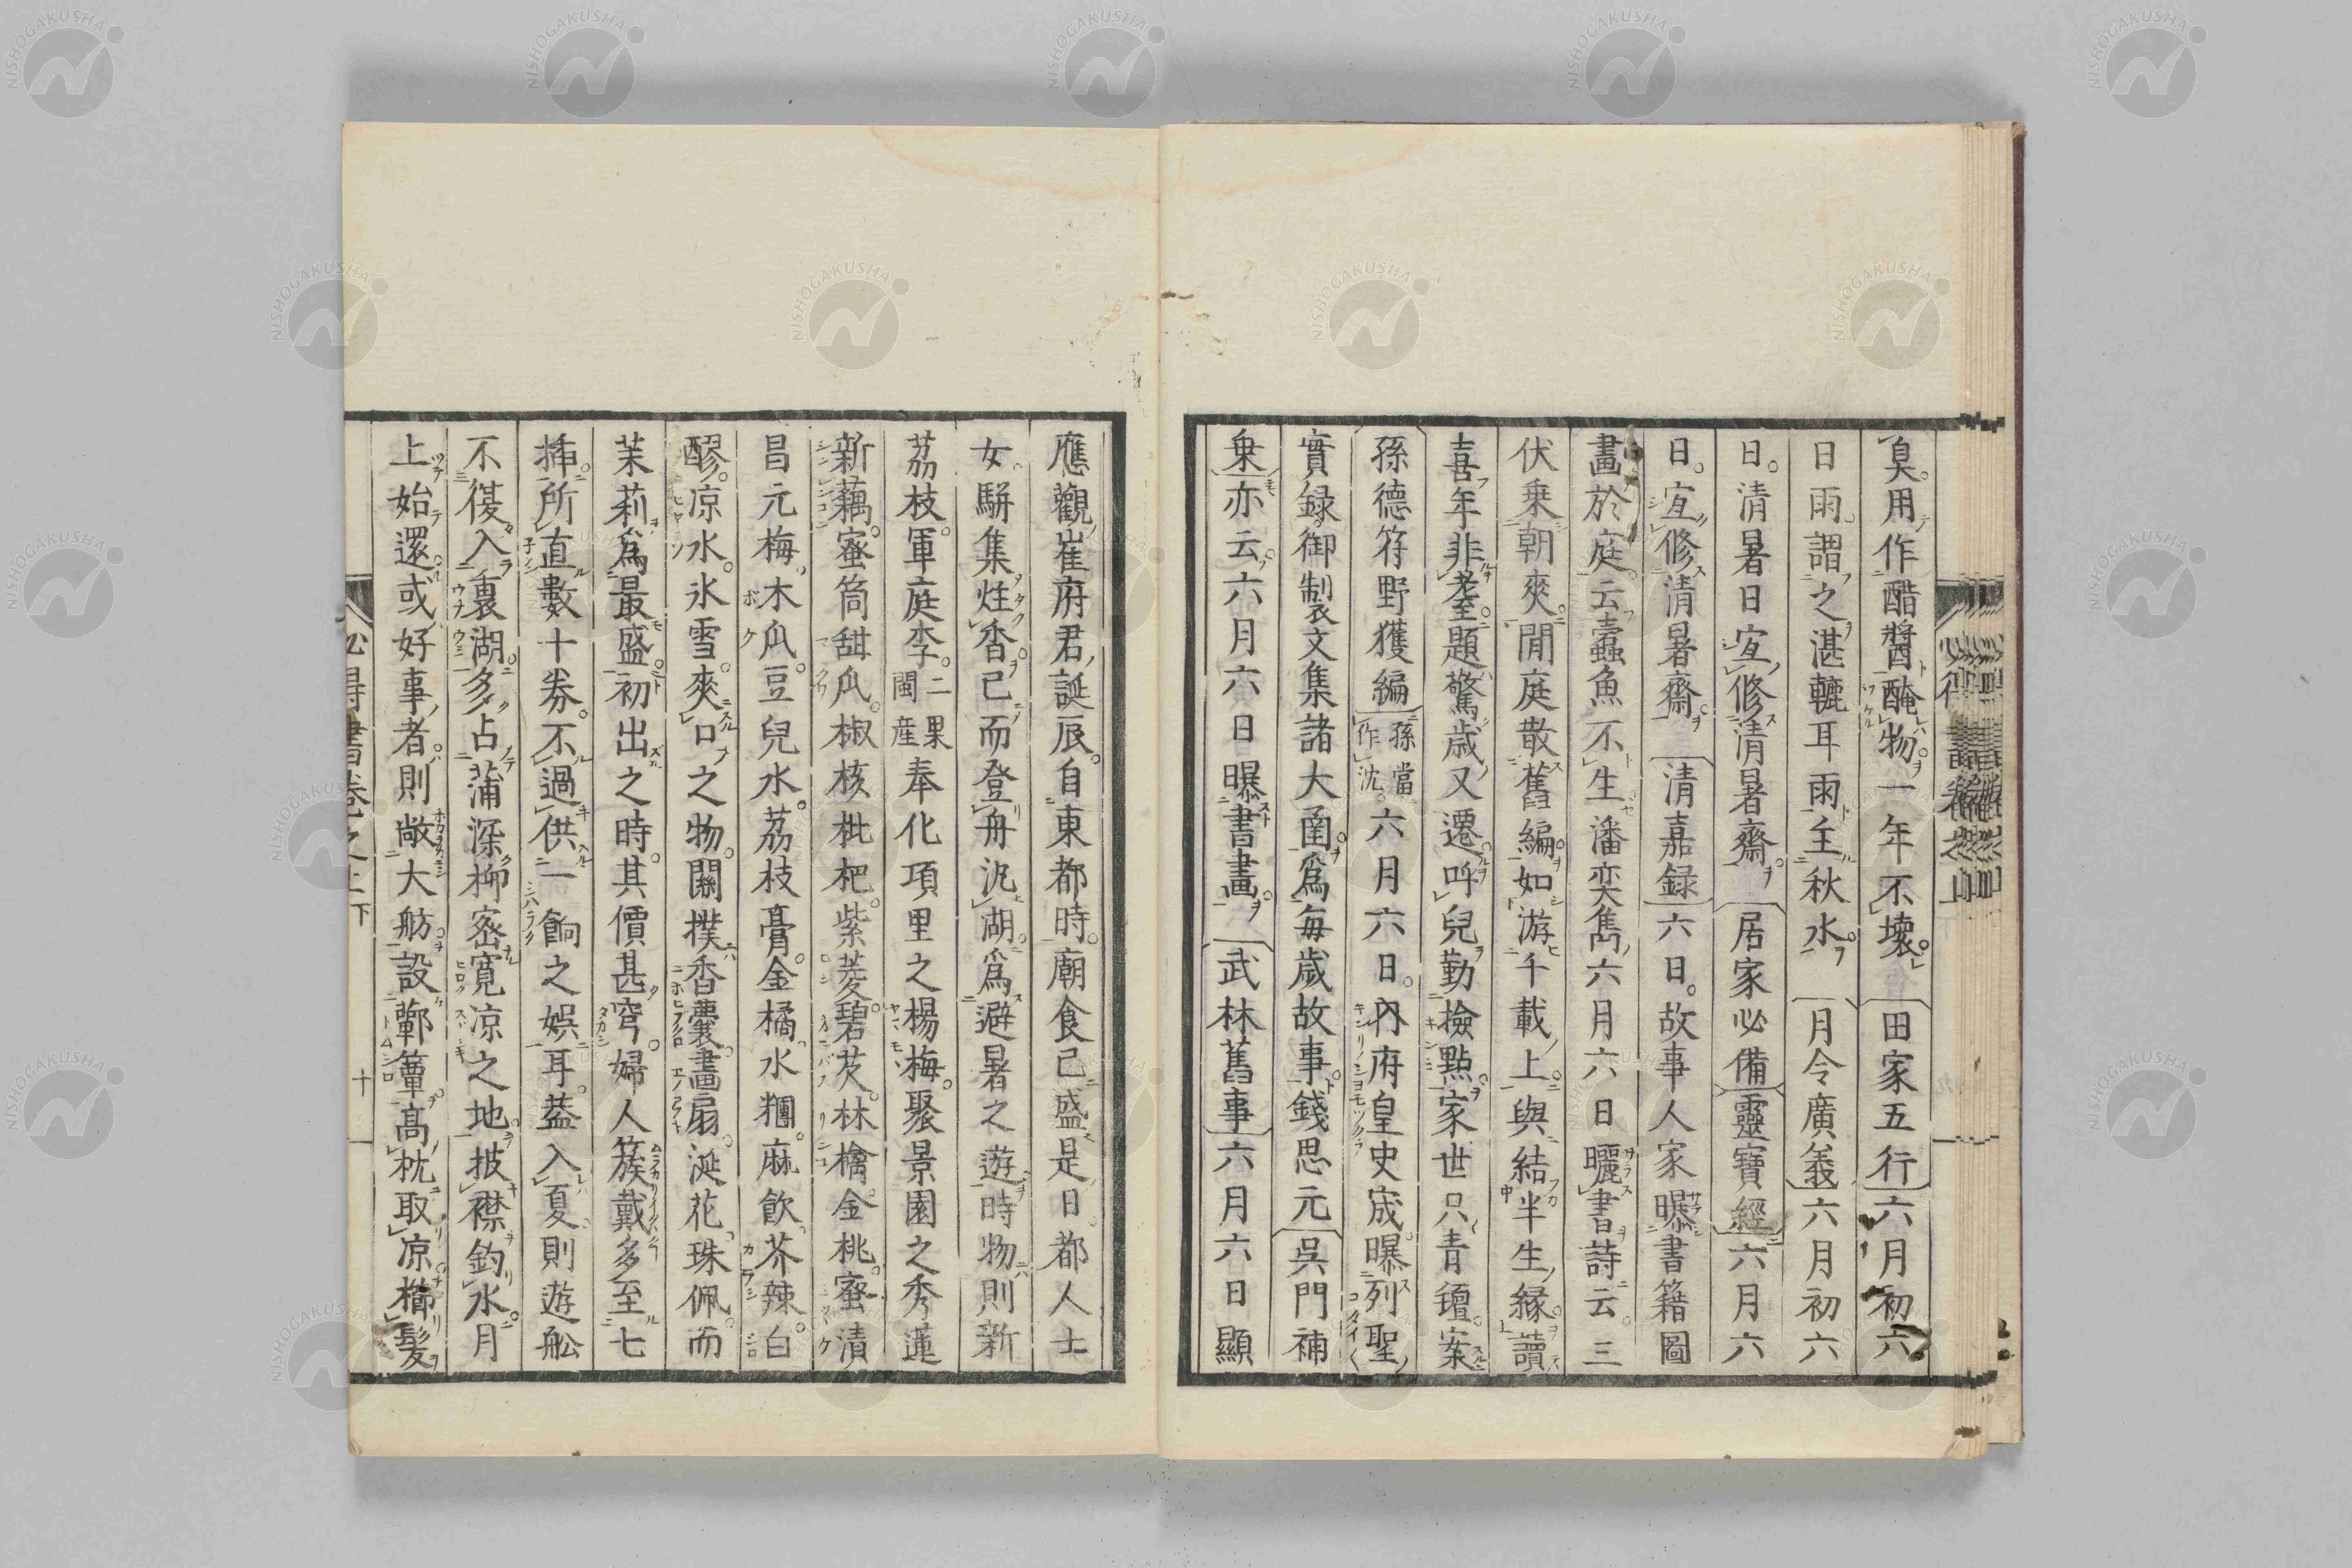 臭用作醋醬醃物一年不壞田家五行六月初六
日雨謂之湛轆耳雨主秋水月令廣義六月初六
日清暑日宐修清暑齋居家必備靈寶經六月六
日宐修清暑齋清嘉録六日故事人家曝書籍圖
畫於庭云蠹魚不生潘奕雋六月六日曬書詩云三
伏乗朝爽閒庭散舊編如游千載上與結半生緣讀
喜年非耋題驚歳又遷呼兒勤撿點家世只青氊案
孫德符野獲編孫當作沈六月六日內府皇史宬曝列聖
實録御製文集諸大函爲每歳故事錢思元吳門補
乗亦云六月六日曝書畫武林舊事六月六日顯
應觀崔府君誕辰自東都時廟食已盛是日都人士
女駢集炷香已而登舟汎湖爲避暑之遊時物則新
荔枝軍庭李二果閩産奉化項里之楊梅聚景園之秀蓮
新藕蜜筒甜瓜椒核枇杷紫菱碧芡林檎金桃蜜漬
昌元梅木瓜豆兒水荔枝膏金橘水糰麻飲芥辣白
醪凉水氷雪爽口之物關撲香囊畫扇涎花珠佩而
茉莉爲最盛初出之時其價甚穹婦人簇戴多至七
挿所直數十券不過供一餉之娯耳葢入夏則遊舩
不復入裏湖多占蒲深柳宻寛凉之地披襟釣水月
上始還或好事者則敞大舫設蘄簟高枕取凉櫛髮
必得書卷之上下 十一
NISHOGAKUSHA